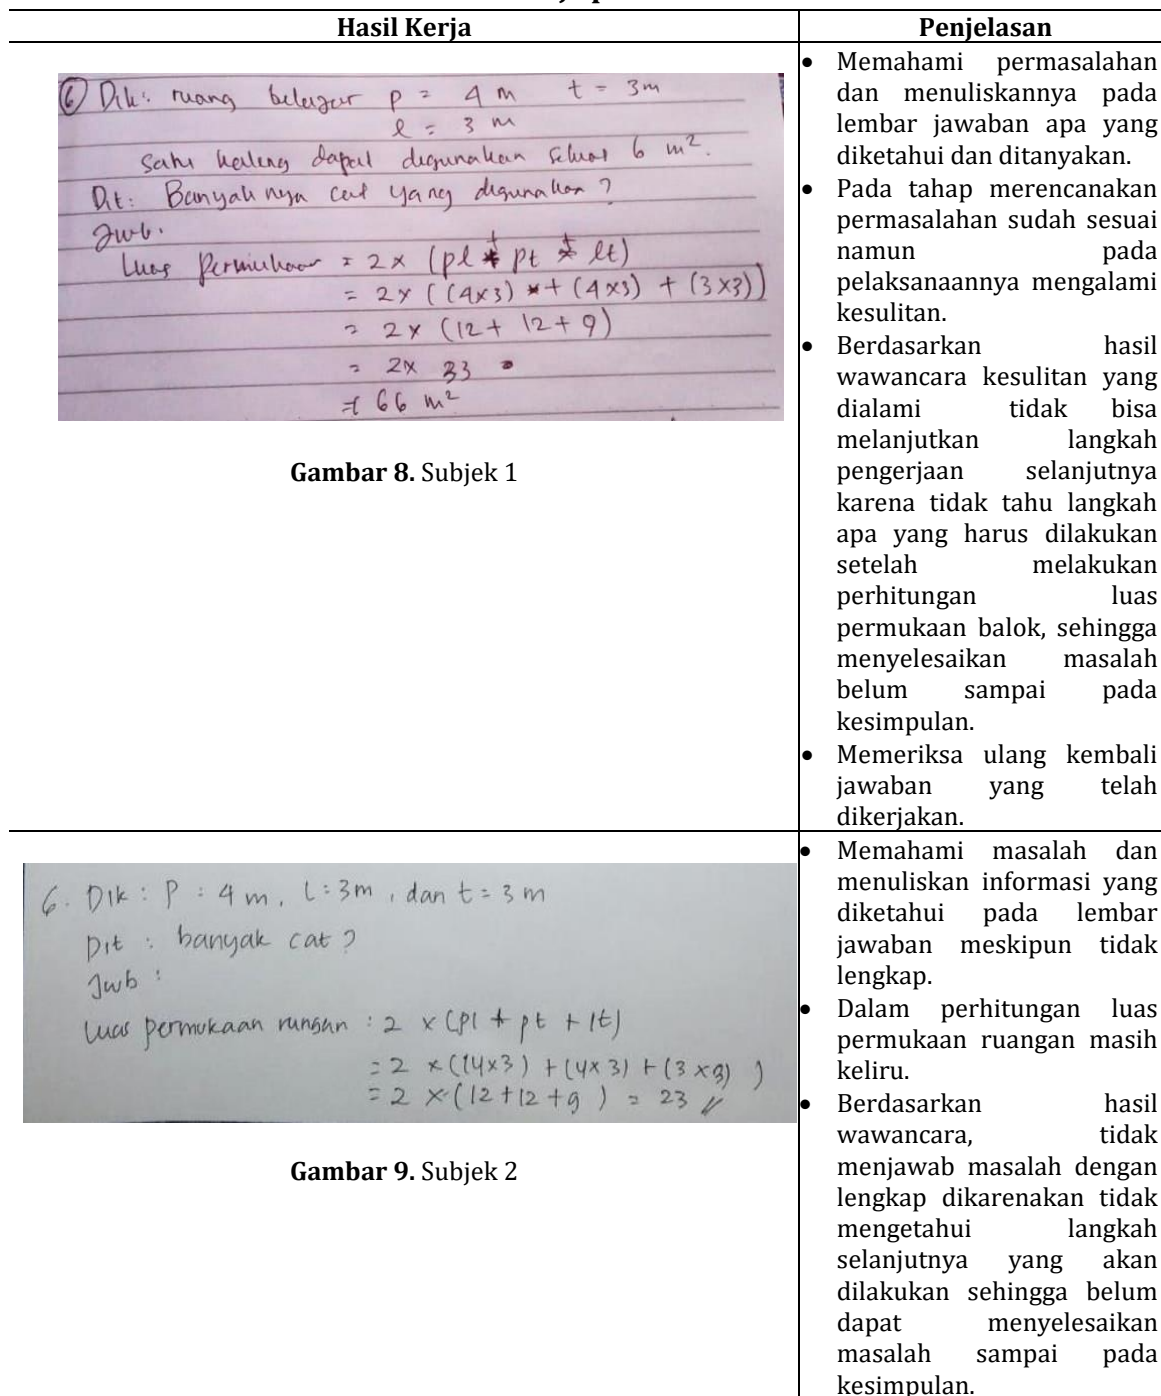 Hasil Kerja
Penjelasan
6 Dik: ruang belajar p = 4 m t = 3m
l = 3 m
Satu kaleng dapat digunakan seluas 6 m².
Dit: Banyak nya cat yang digunakan?
Jwb.
Luas Permukaan = 2x (pl + pt + lt)
= 2x ((4x3) + (4x3) + (3x3))
= 2x (12 + 12 + 9)
= 2x 33
= 66 m²
Gambar 8. Subjek 1
• Memahami permasalahan
dan menuliskannya pada
lembar jawaban apa yang
diketahui dan ditanyakan.
• Pada tahap merencanakan
permasalahan sudah sesuai
namun pada
pelaksanaannya mengalami
kesulitan.
• Berdasarkan hasil
wawancara kesulitan yang
dialami tidak bisa
melanjutkan langkah
pengerjaan selanjutnya
karena tidak tahu langkah
apa yang harus dilakukan
setelah melakukan
perhitungan luas
permukaan balok, sehingga
menyelesaikan masalah
belum sampai pada
kesimpulan.
• Memeriksa ulang kembali
jawaban yang telah
dikerjakan.
6. Dik : P : 4 m, l : 3m, dan t = 3 m
Dit : banyak cat ?
Jwb :
Luas permukaan rungan : 2 x (pl + pt + lt)
= 2 x ((4x3) + (4x3) + (3x3))
= 2 x (12+12+9) = 23
Gambar 9. Subjek 2
• Memahami masalah dan
menuliskan informasi yang
diketahui pada lembar
jawaban meskipun tidak
lengkap.
• Dalam perhitungan luas
permukaan ruangan masih
keliru.
• Berdasarkan hasil
wawancara, tidak
menjawab masalah dengan
lengkap dikarenakan tidak
mengetahui langkah
selanjutnya yang akan
dilakukan sehingga belum
dapat menyelesaikan
masalah sampai pada
kesimpulan.